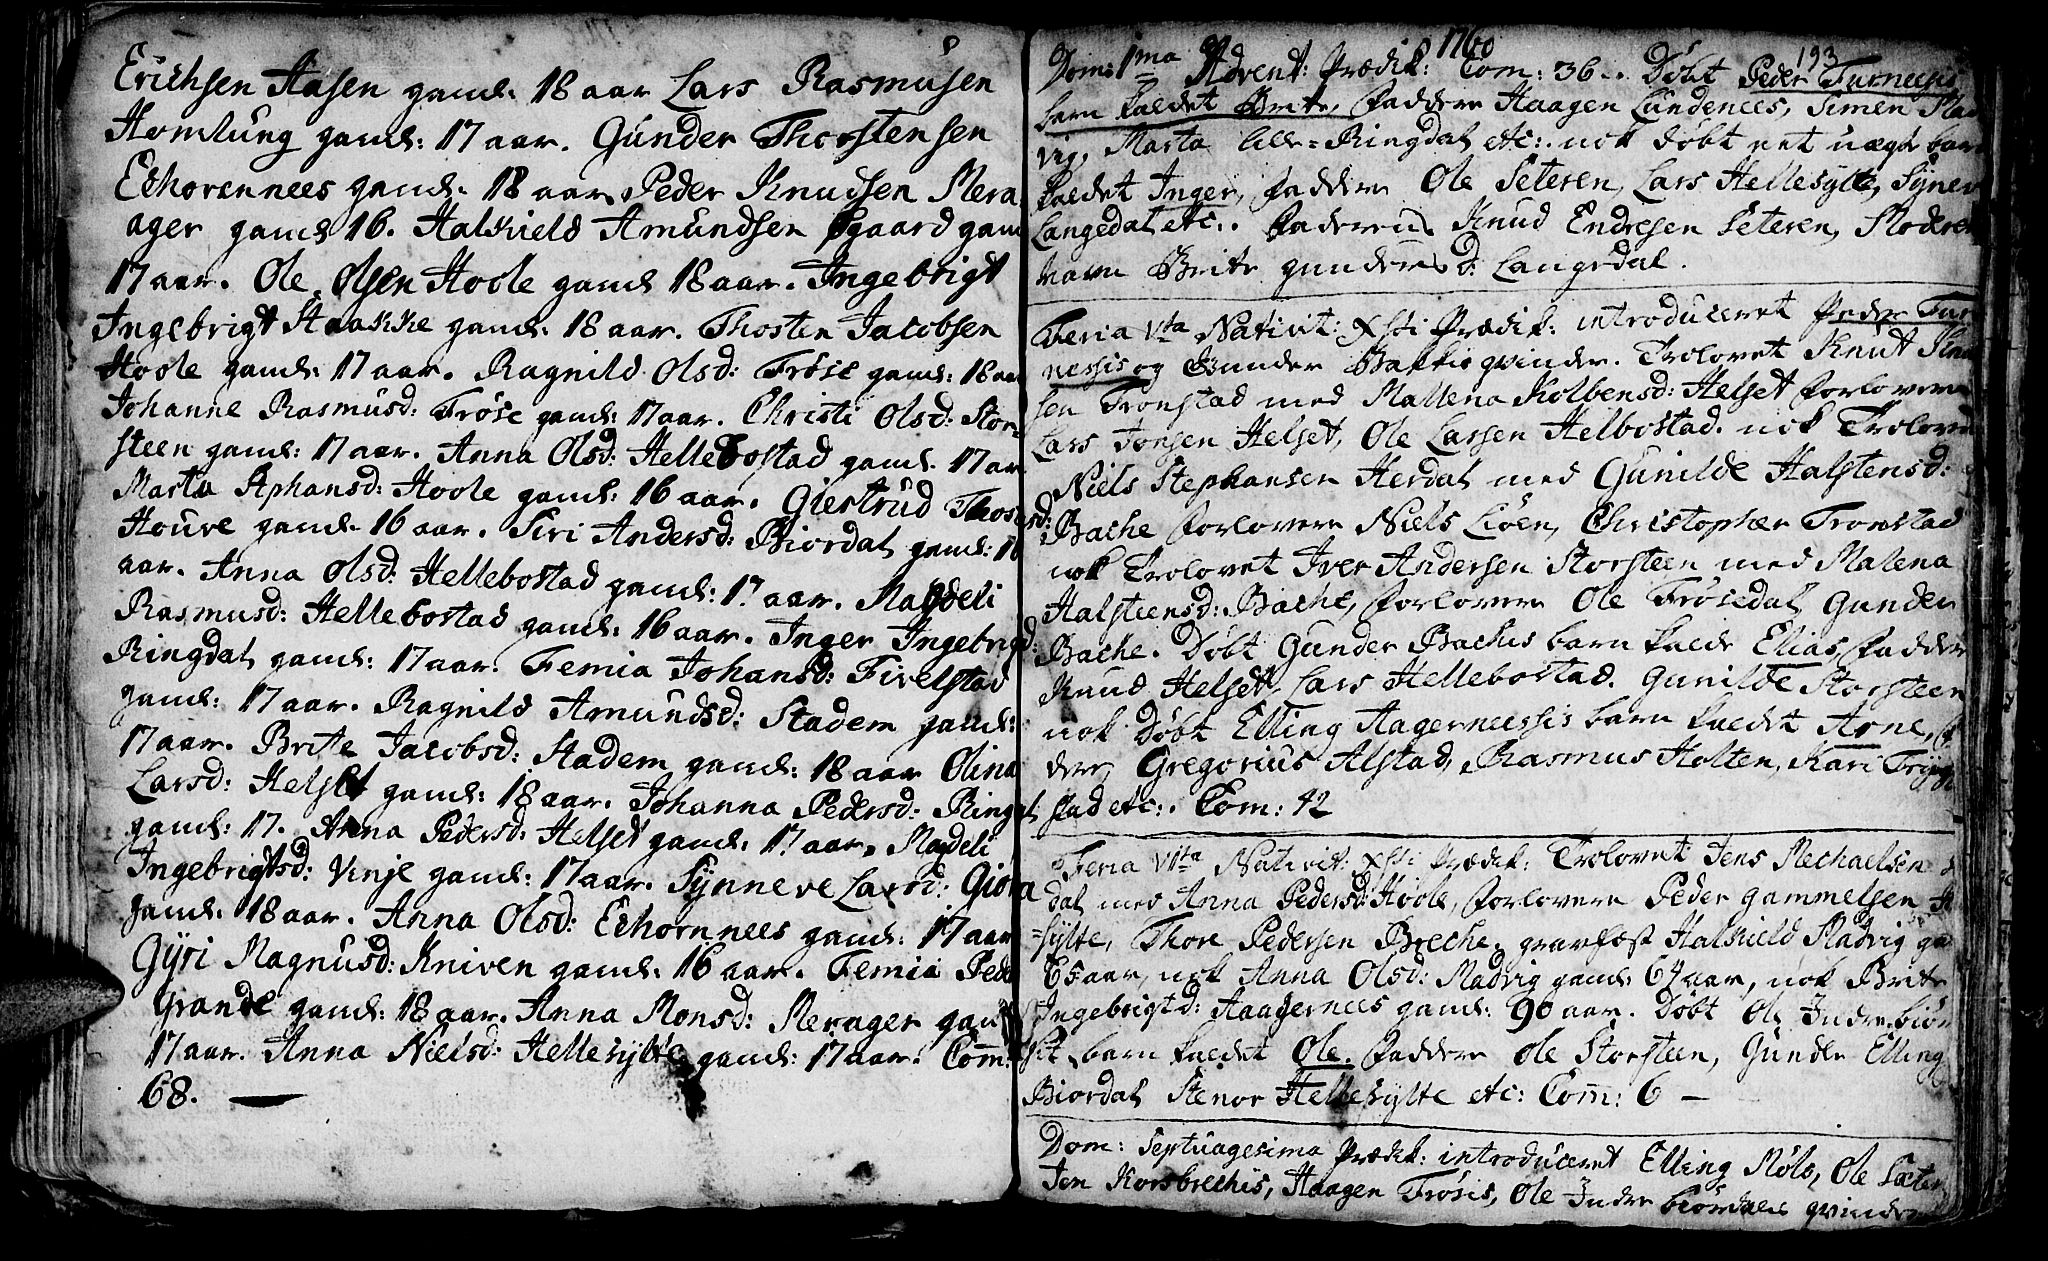 Erichsen Aasen gaml: 18 aar Lars Rasmusen
Homlung gaml: 17 aar. Gunder Thorstensen
Echorennees gaml: 18 aar Peder Knudsen Mera
ager gaml 16. Halkield Amundsen Øgaard gaml
17 aar. Ole Olsen Hoole gaml 18 aar. Ingebrigt
Ingebrigt Staakke gaml: 18 aar. Thosten Jacobsen
Hoole gaml: 17 aar. Ragnild Olsd: Frøse gaml: 18 aar
Johanne Rasmusd: Frøse gaml: 17 aar. Christi Olsd: Stor-
steen gaml: 17 aar. Anna Olsd: Hellebostad gaml. 17 aar
Marta Stphansd: Hoole gaml: 16 aar. Giertrud Thosensd:
Houve gaml. 16 aar. Siri Andersd: Biordal gaml: 16
aar. Anna Olsd: Hellebostad gaml: 17 aar. Magdeli
Rasmusd: Hellebostad gaml: 16 aar. Inger Ingebrigd:
Ringdal gaml: 17 aar. Femia Johansd: Fivelstad
gaml: 17 aar. Ragnild Amundsd: Stadem gaml:
17 aar. Brite Jacobsd: Stadem gaml: 18 aar Olina
Larsd: Helset gaml: 18 aar. Johanna Pedersd: Ringdal
gaml: 17. Anna Pedersd: Helset gaml: 17 aar. Magdeli
Ingebrigtsd: Vinje gaml: 17 aar. Synneve Larsd: Giøra
gaml: 18 aar. Anna Olsd: Echornnees gaml: 17 aar
Gÿri Magnusd: Kniven gaml: 16 aar. Femia Peder
Grande gaml: 18 aar. Anna Monsd: Merager gaml
17 aar. Anna Nielsd: Hellesylte gaml: 17 aar. Com:
68.
1760
193
Dom: 1ma Advent: Prædik: Com: 36. Døbt Peder Furneesis
barn kaldet Brite, Faddere Haagen Lundenees, Simen Mad
vig, Marta lille-Ringdal etc: nok døbt eet uægte barn
kaldet Inger, Faddere Ole Seteren, Lars Hellesylte, Synev
Langedal etc:. Faderens Knud Endresen Seteren, Moderens
navn Brite gundersd: Langedal.
Feria Vta Nativit: Xsti Prædik: introduceret Peder Fur
neesis og Gunder Bakkis qvinder. Trolovet Knut Knu
sen Tronstad med Mallena Kolbensd: Helset forlovere
Lars Jonsen Helset, Ole Larsen Helbostad. nok Trolovet
Niels Stephansen Herdal med Gunilde Halstensd:
Bache forlovere Niels Liøen, Christopher Tronstad
nok Trolovet Iver Andersen Storsteen med Malena
Halsteensd: Bache, forlovere Ole Frøsedal, Gunder
Bache. Døbt Gunder Bachis barn kalde Elias, Faddere
Knud Helset, Lars Hellebostad. Gunilde Storsteen
nok Døbt Elling Aagerneessis barn kaldet Arne, F
dere, Gregorius Alstad, Rasmus Holten, Kari Trygge
stad etc:. Com: 42
Feria VIta Nativit: Xsti Prædik: Trolovet Jens Mechaelsen
dal med Anna Pedersd: Hoole, forlovere Peder gammelsen H
=sylte, Thore Pedersen Breche. gravfæst Halkield Madvig ga
65 aar, nok Anna Olsd: Madvig gaml 64 aar, nok Brite
Ingebrigtd: Aagernees gaml: 90 aar. Døbt Ole Indre biør
barn kaldet Ole. Faddere Ole Storsteen, Gundle Elling
Biordal, Stenor Hellesylte etc: Com: 6 —
Dom: Septuagesima Prædik: introduceret Elling Møls, Ole Sæter
Jon Korsbrechis, Haagen Frøsis, Ole Indre biørdals qvinder